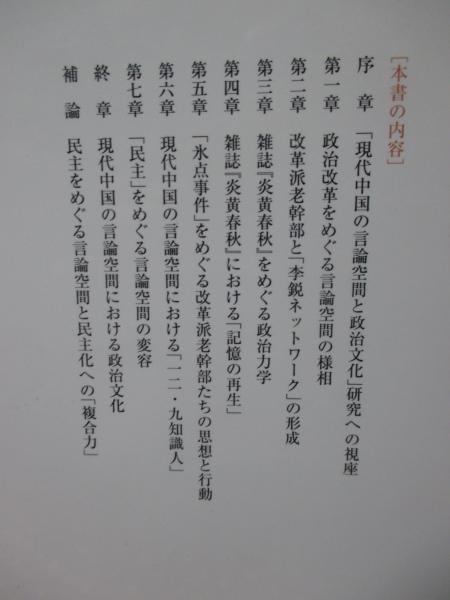 ［本書の内容］
序　章　「現代中国の言論空間と政治文化」研究への視座
第一章　政治改革をめぐる言論空間の様相
第二章　改革派老幹部と「李鋭ネットワーク」の形成
第三章　雑誌『炎黄春秋』をめぐる政治力学
第四章　雑誌『炎黄春秋』における「記憶の再生」
第五章　「氷点事件」をめぐる改革派老幹部たちの思想と行動
第六章　現代中国の言論空間における「一二・九知識人」
第七章　「民主」をめぐる言論空間の変容
終　章　現代中国の言論空間における政治文化
補　論　民主をめぐる言論空間と民主化への「複合力」